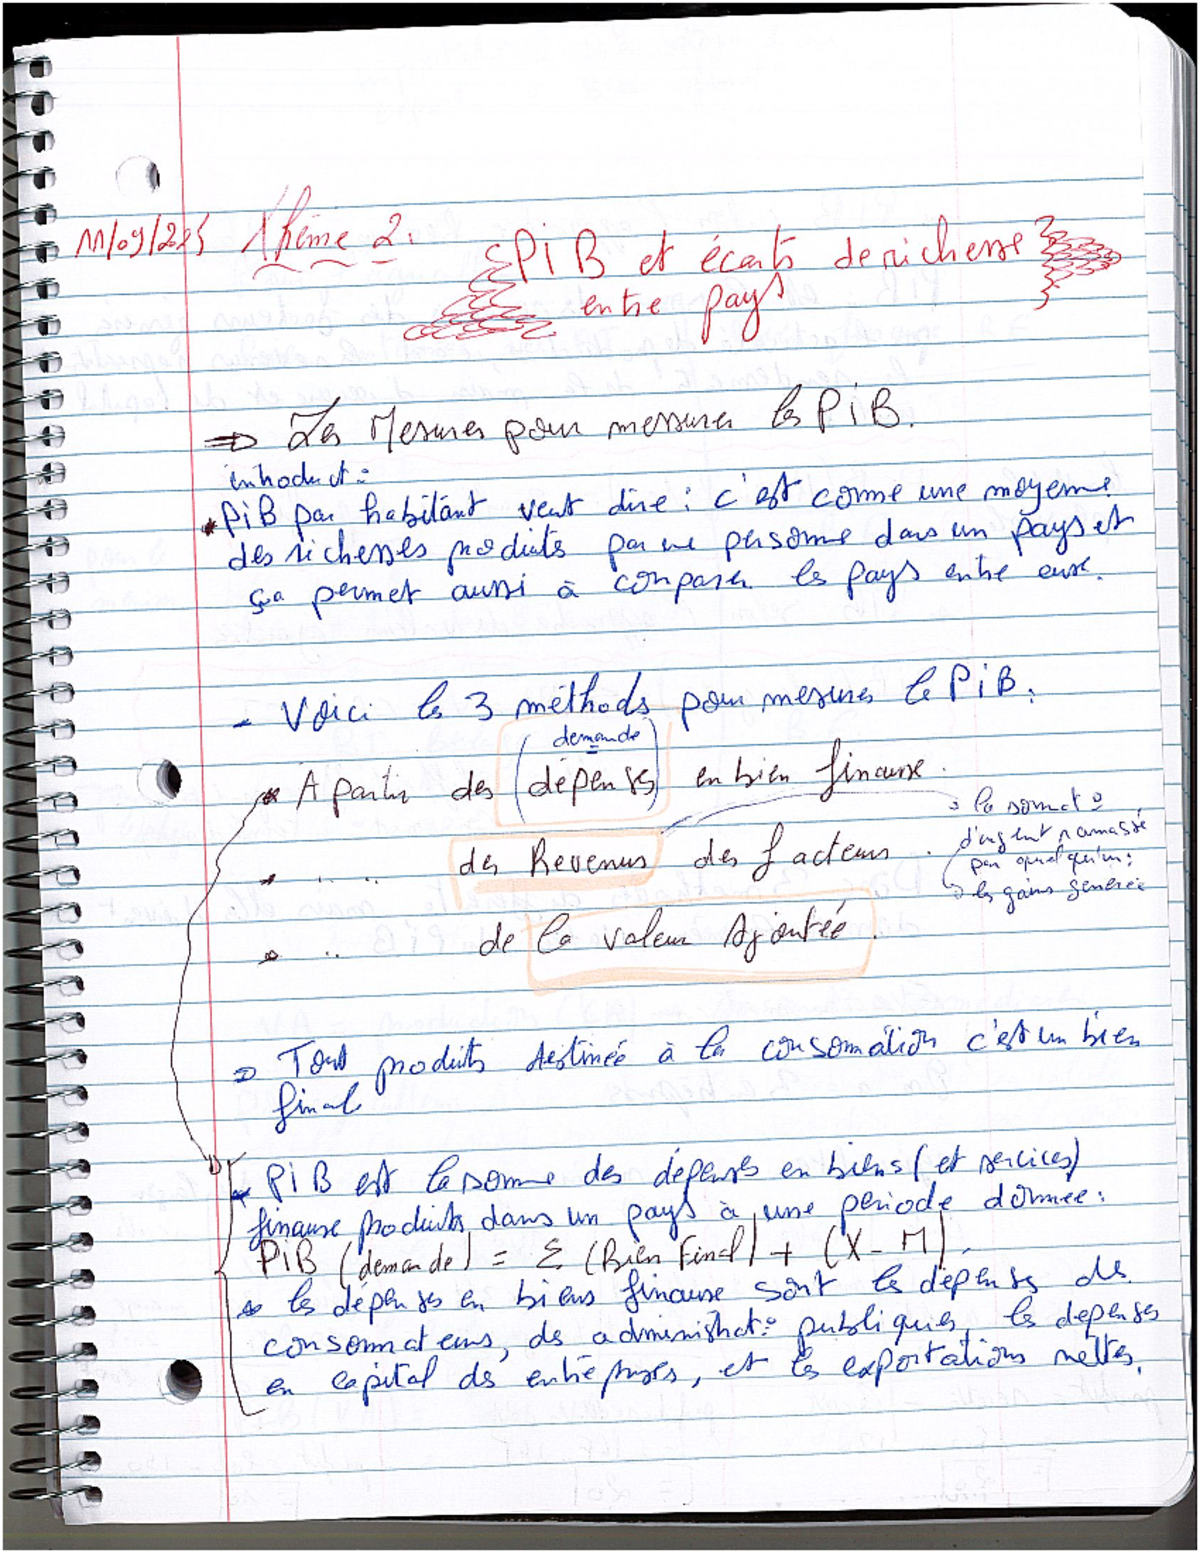 11/09/2025 Thème 2:
PiB et écarts de richesse
entre pays
=> Les Mesures pour mesurer les PiB.
introduct°:
* PiB par habitant veut dire : c'est comme une moyenne
des richesses produits par une personne dans un pays et
ça permet aussi à comparer les pays entre eux.
- Voici les 3 méthods pour mesurer le PiB:
demande
* A partir des (dépenses) en bien finaux.
→ la somat°
* .. .. des Revenus des facteurs.
d'argent ramassé
par quelqu'un;
→ les gains générée
* .. de la valeur Ajoutée.
→ Tout produits destinée à la consomation c'est un bien
final
* PiB est la somme des dépenses en biens (et services)
finaux produits dans un pays à une période donnée:
PiB (demande) = Σ (Bien Final) + (X - M).
→ les dépenses en biens finaux sont les dépenses des
consomateurs, des administrat° publiques, les depenses
en capital des entreprises, et les exportations nettes.